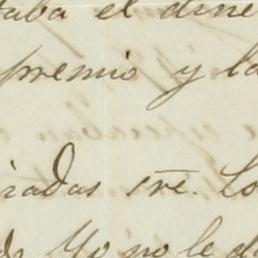 taba el dine
premio y la
radas sre. Lo
Yo no le d